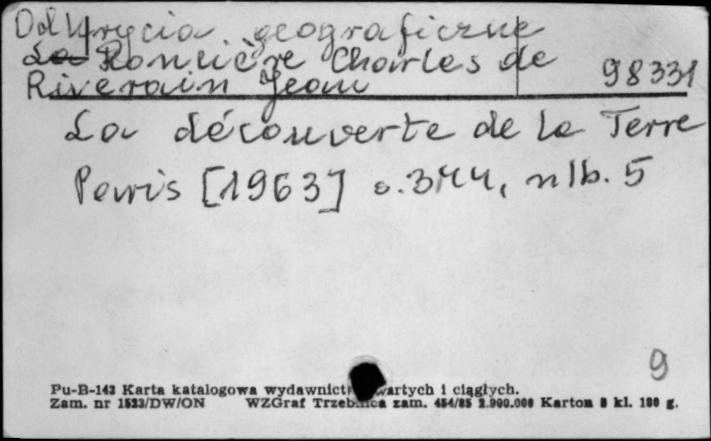 Odkrycia geograficzne
La Roncière Charles de
Riverain Jean 98331
La découverte de la Terre
Paris [1963] s. 344, nlb. 5
9
Pu-B-143 Karta katalogowa wydawnict wartych i ciągłych.
Zam. nr 1523/DW/ON WZGraf Trzebnica zam. 454/85 2.900.000 Karton kl. 180 g.